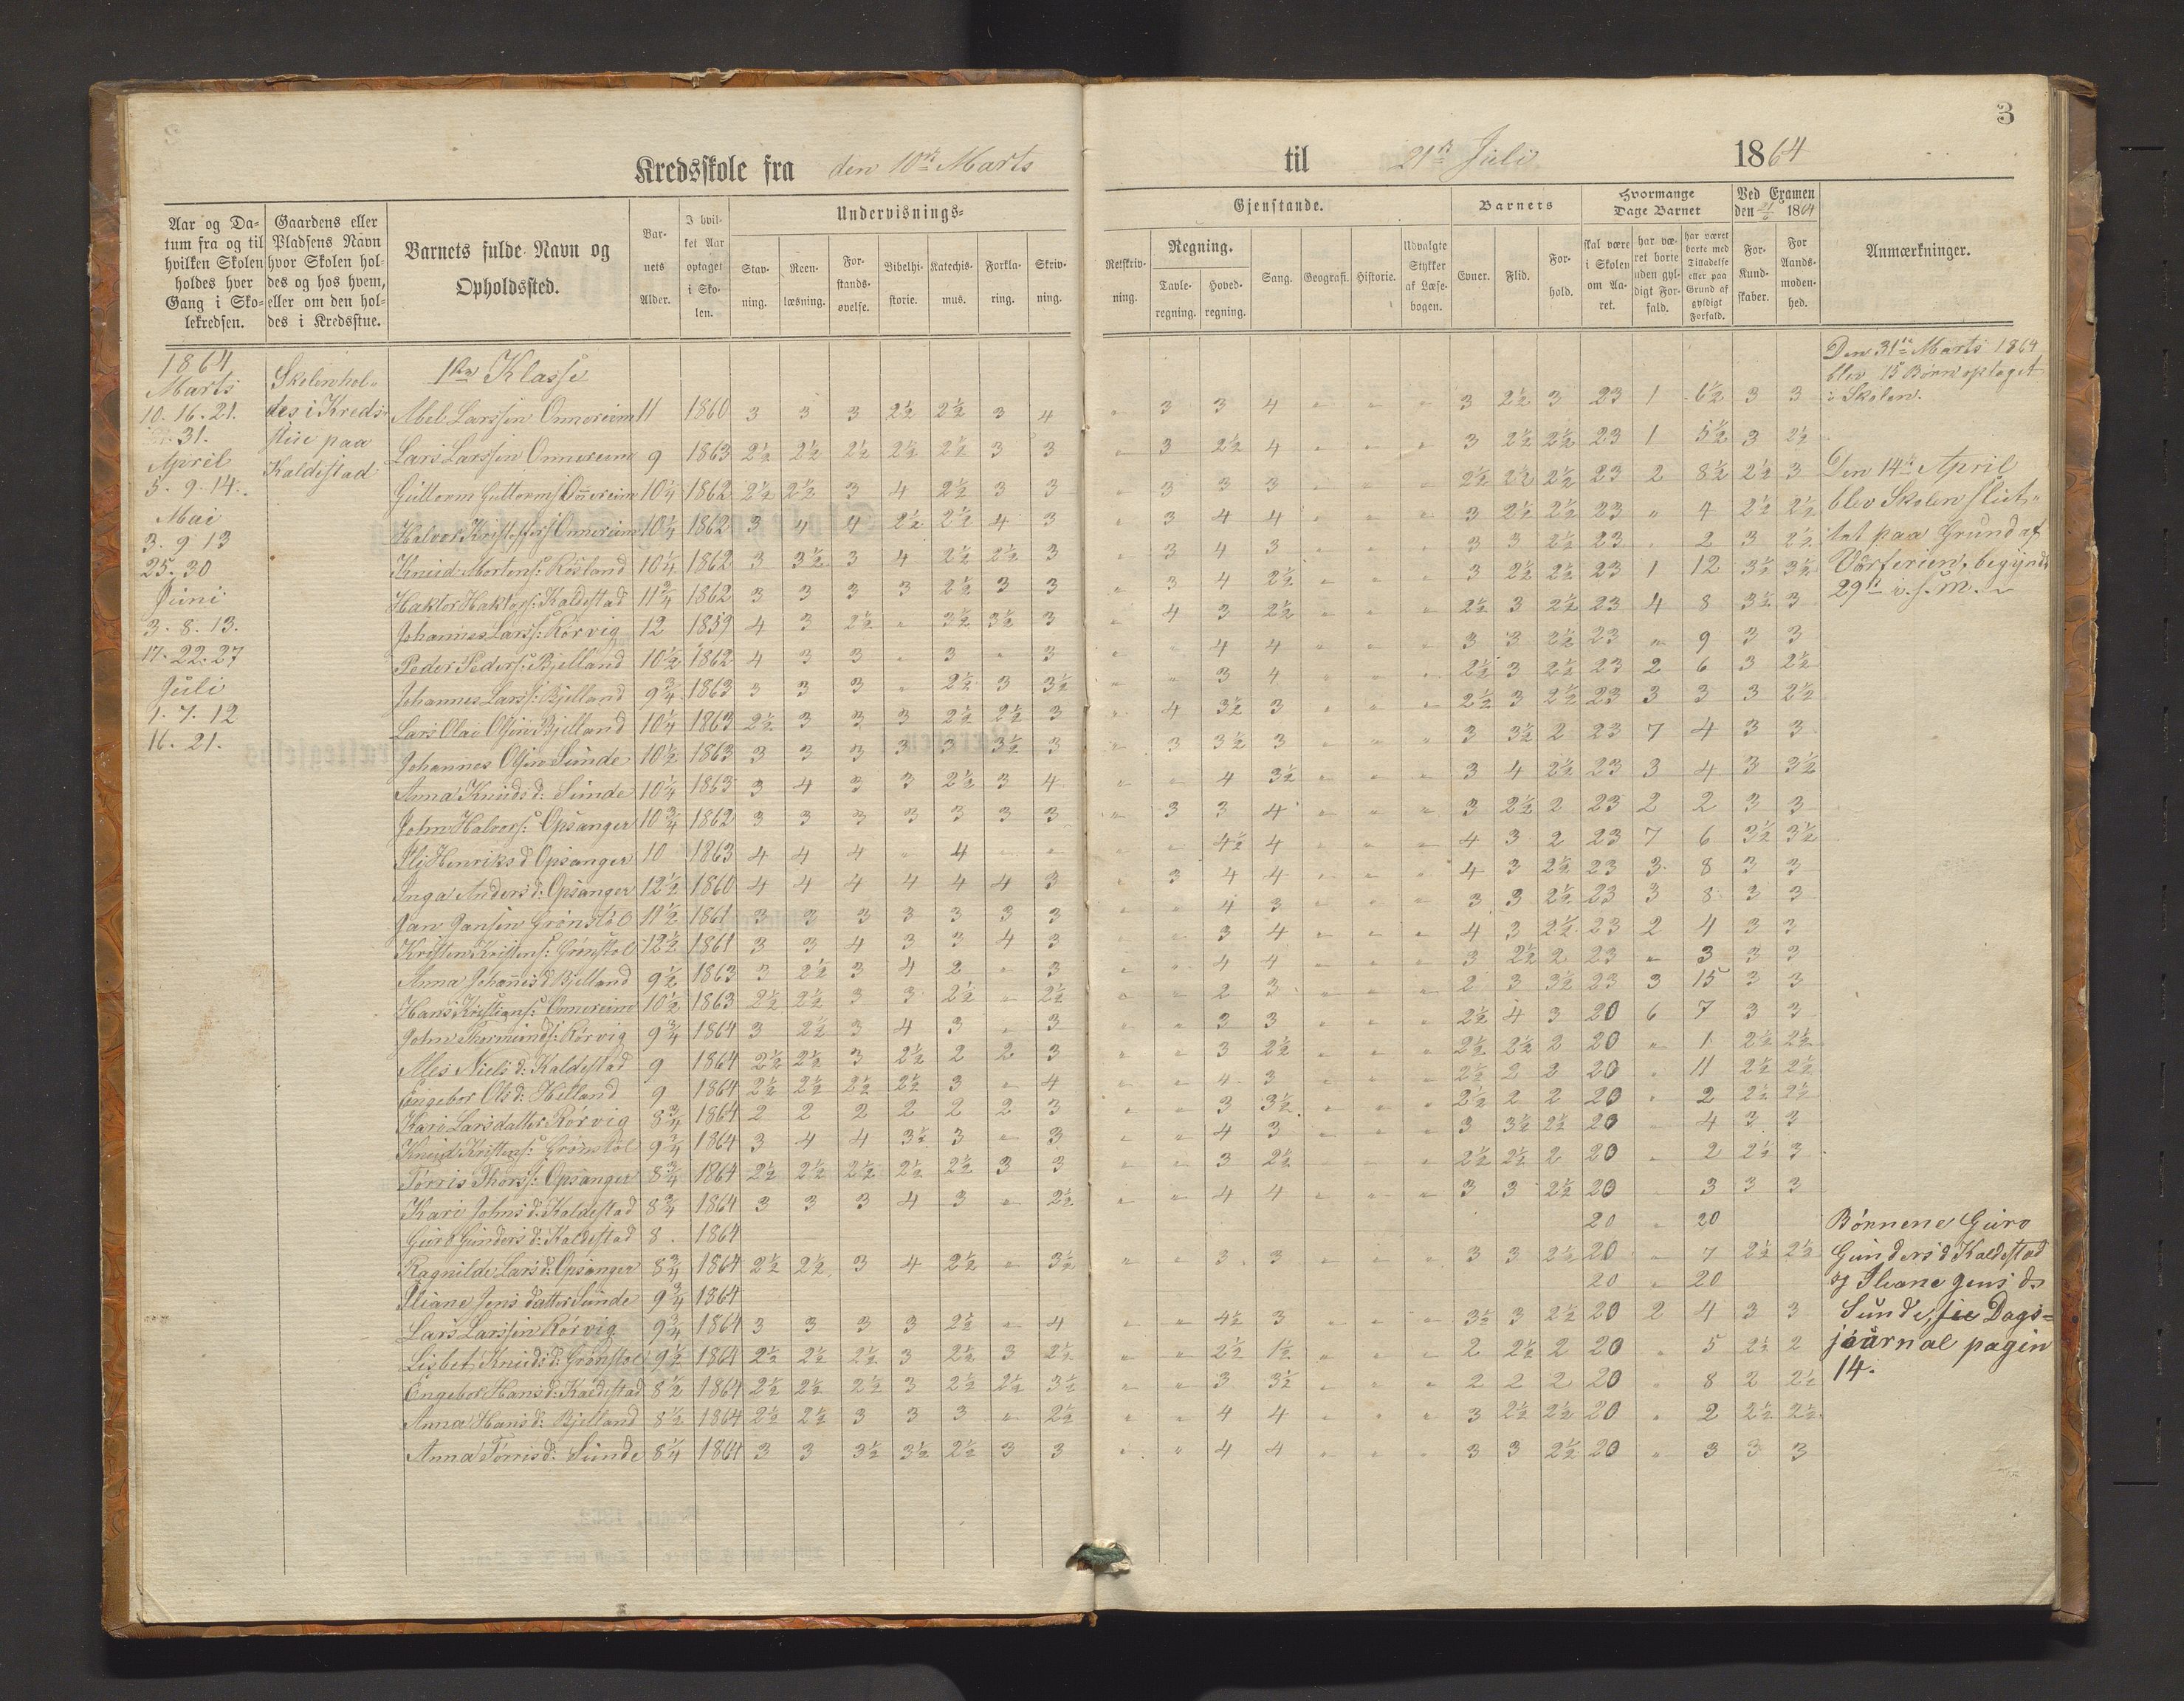 3
Kredsskole fra den 10de Marts til 21de Juli 1864
Aar og Da-
tum fra og til
hvilken Skolen
holdes hver
Gang i Sko-
lekredsen.
Gaardens eller
Pladsens Navn
hvor Skolen hol-
des og hos hvem,
eller om den hol-
des i Kredsstue.
Barnets fulde Navn og
Opholdssted.
Bar-
nets
Alder.
I hvil-
ket Aar
optaget
i Sko-
len.
Undervisnings-
Stav-
ning.
Reen-
læsning.
For-
stands-
øvelse.
Bibelhi-
storie.
Katechis-
mus.
Forkla-
ring.
Skriv-
ning.
Gjenstande.
Retskriv-
ning.
Regning.
Tavle-
regning.
Hoved-
regning.
Sang.
Geografi.
Historie.
Udvalgte
Stykker
af Læse-
bogen.
Barnets
Evner.
Flid.
For-
hold.
Hvormange
Dage Barnet
skal være
i Skolen
om Aa-
ret.
har væ-
ret borte
uden gyl-
digt For-
fald.
har været
borte med
Tilladelse
eller paa
Grund af
gyldigt
Forfald.
Ved Examen
den 21/6 1864
For-
Kund-
skaber.
For
Aands-
moden-
hed.
Anmærkninger.
1864
Marts
10. 16. 21.
31.
April
5. 9. 14.
Mai
3. 9. 13
25. 30
Juni
3. 8. 13.
17. 22. 27
Juli
1. 7. 12
16. 21.
Skolen hol-
des i Kreds-
stue paa
Kaldestad
1ste Klasse
Abel Larssen Onnereim 11 1860 3 3 3 2½ 2½ 3 4 " 3 3 4 " " " 3 2½ 3 23 1 6½ 3 3
Lars Larssen Onnereim 9 1863 2½ 2½ 2½ 2½ 2½ 3 3 " 3 2½ 4 " " " 3 2½ 2½ 23 1 5½ 3 2½
Guttorm Guttorms: Onnereim 10¼ 1862 2½ 2½ 3 4 2½ 3 3 " 3 3 3 " " " 2½ 2½ 2½ 23 2 8½ 2½ 3
Halvor Kristoffers: Onnereim 10¼ 1862 3 4 4 2½ 2½ 4 3 " 3 4 4 " " " 3 2½ 2½ 23 " 4 2½ 2½
Knud Mortens: Røsland 10¼ 1862 3 3½ 3 4 2½ 2½ 3 " 3 4 3 " " " 3 3 2½ 23 " 2 3 2½
Haktor Haktors: Kaldestad 11¾ 1862 3 3 3 3 2½ 3 3 " 3 4 2½ " " " 3 2½ 2½ 23 1 12 3½ 3½
Johannes Larss: Rørvig 12 1859 4 3 2½ " 3½ 3½ 3 " 4 3 2½ " " " 2½ 3 2½ 23 4 8 3½ 3
Peder Peders: Bjelland 10½ 1862 4 3 3 " 3 " 3 " " 4 4 " " " 3 3 2½ 23 " 9 3 3
Johannes Larss: Bjelland 9¾ 1863 3 3 3 " 2½ 3 3½ " " 3 4 " " " 2½ 3 2½ 23 2 6 3 2½
Lars Olai Olsen Bjelland 10¼ 1863 2½ 3 3 3 2½ 2½ 3 " 4 3½ 3 " " " 2½ 3 2½ 23 3 3 3 2½
Johannes Olsen Sunde 10½ 1863 3 3 3 3 3 3½ 3 " 3 3½ 3 " " " 3 3½ 2 23 7 4 3 3
Anna Knuds d: Sunde 10¼ 1863 3 4 3 3 2½ 3 4 " " 4 3½ " " " 3 4 2½ 23 3 4 3 3½
John Halvors: Opsanger 10¾ 1862 3 3 3 3 3 3 3 " 3 3 4 " " " 3 2½ 2 23 2 2 3 3
Ili Henriks d Opsanger 10 1863 4 4 4 " 4 " " " " 4½ 4 " " " 4 3 2 23 7 6 3½ 3½
Inga Anders d: Opsanger 12½ 1860 4 4 4 4 4 4 3 " 3 4 4 " " " 4 3 2½ 23 3 8 3 3
Jan Jansen Grønstøl 11½ 1861 3 3 3 3 3 3 3 " " 4 3 " " " 3 3 2½ 23 3 8 3 3
Kristen Kristens: Grønstøl 12½ 1861 3 3 4 3 3 4 3 " 3 4 " " " 4 3 2½ 23 2 4 3 3
Anna Johannes d Bjelland 9½ 1863 3 2½ 3 4 2 " 3 " " 4 4 " " " 3 2½ 2 23 " 3 3 3
Hans Kristians: Onnereim 10½ 1863 2½ 2½ 3 3 2½ " 2½ " " 2 3 " " " 2 3 3½ 23 3 15 3 3
John Thormunds: Rørvig 9¾ 1864 3 2½ 3 4 3 " 3 " " 3 3 " " " 2½ 4 3 20 6 7 3 3
Ales Niels d: Kaldestad 9 1864 2½ 2½ 3 2½ 2 2 3 " " 3 2½ " " " 2½ 2½ 2 20 " 1 2½ 2½
Engebor Ols d: Helland 9 1864 2½ 2½ 2½ 2½ 3 " 4 " " 4 3 " " " 2½ 2 2 20 " 11 2½ 2½
Kari Larsdatter Rørvig 8¾ 1864 2 2 2 2 2 2 3 " " 3 3½ " " " 2½ 2 2 20 " 2 2½ 2½
Knud Kristens: Grønstøl 9¾ 1864 3 4 4 3½ 3 " 3 " " 4 3 " " " 3 3½ 2½ 20 " 4 3 3
Tørris Thors: Opsanger 8¾ 1864 2½ 2½ 2½ 2½ 2½ 3 3 " " 3 2½ " " " 2½ 2½ 2 20 " 2 2½ 3
Kari Johns d: Kaldestad 8¾ 1864 3 3 3 4 3 " 2½ " " 4 4 " " " 3 3 2½ 20 " 3 3 3
Guro Gunders d: Kaldestad 8 1864 20 " 20
Ragnilde Lars d: Opsanger 8¾ 1864 2½ 2½ 3 4 2½ " 3½ " " 3 3 " " " 3 3 2½ 20 " 7 2½ 2½
Iliane Jens datter Sunde 9¾ 1864 20 " 20
Lars Larssen Rørvig 9¾ 1864 3 3 3 3 2½ " 4 " " 4½ 3 " " " 3½ 3 2½ 20 2 4 3 3
Lisbet Knuds d: Grønstøl 9½ 1864 2½ 2½ 2½ 3 2½ 3 2½ " " 2½ 1½ " " " 2 2½ 2 20 " 5 2½ 2
Engebor Hans d: Kaldestad 8½ 1864 2½ 2½ 2½ 3 2½ 2½ 3½ " " 3 3½ " " " 2 2 2 20 " 8 2 2½
Anna Hans d: Bjelland 8½ 1864 2½ 2½ 3 3 3 " 2½ " " 4 4 " " " 3 2½ 2½ 20 " 2 2½ 2½
Anna Tørris d: Sunde 8¼ 1864 3 3 3½ 3½ 2½ 3 3 " " 4 4 " " " 3 3 2½ 20 " 3 3 3
Den 31te Marts 1864
blev 15 Børn optaget
i Skolen.
Den 14de April
blev Skolen slut-
tet paa Grund af
Vårferien, begynd
29de i. s. M.
Børnene Guro
Gunders d Kaldestad
og Iliane Jens d.
Sunde, see Dags-
journal pagin
14.